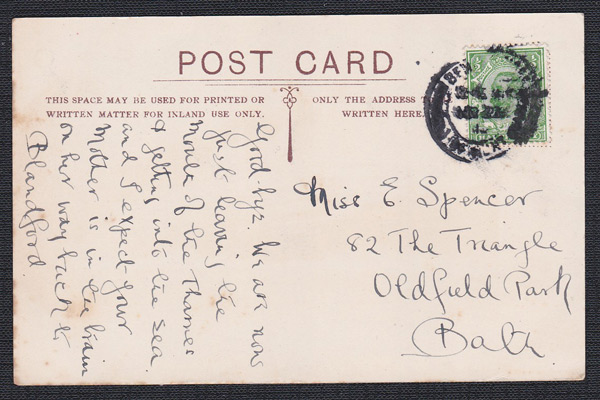 POST CARD
THIS SPACE MAY BE USED FOR PRINTED OR
WRITTEN MATTER FOR INLAND USE ONLY.
ONLY THE ADDRESS
WRITTEN HERE
Good bye. We are now
just leaving the
Mouth of the Thames
& getting into the sea
and I expect your
Mother is in the train
on her way back to
Blandford.
Miss E. Spencer
82 The Triangle
Oldfield Park
Bath